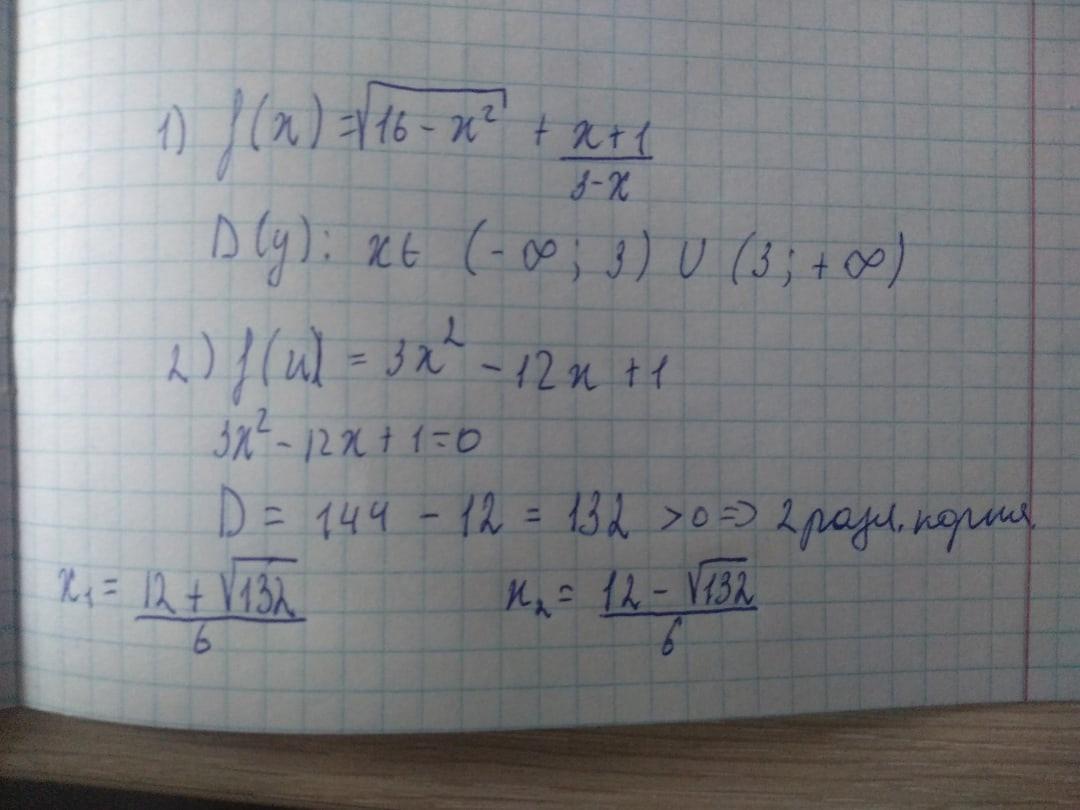 1) f(x) = √(16 - x²) + (x+1)/(3-x)
D(y): x ∈ (-∞; 3) ∪ (3; +∞)
2) f(x) = 3x² - 12x + 1
3x² - 12x + 1 = 0
D = 144 - 12 = 132 > 0 => 2 разл. корня
x₁ = (12 + √132)/6 x₂ = (12 - √132)/6